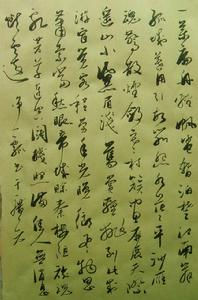 一葉扁舟輕帆卷暫泊楚江南岸
孤城暮角引胡笳怨水茫茫平沙雁
旋驚散煙斂寒林簇畫屏展天際
遙山小黛眉淺舊賞輕拋到此成
游宦覺客程勞年光晚異鄉風物忍
蕭索當愁眼帝城賒秦樓阻旅魂
亂芳草連空闊殘照滿佳人無消息
斷雲遠